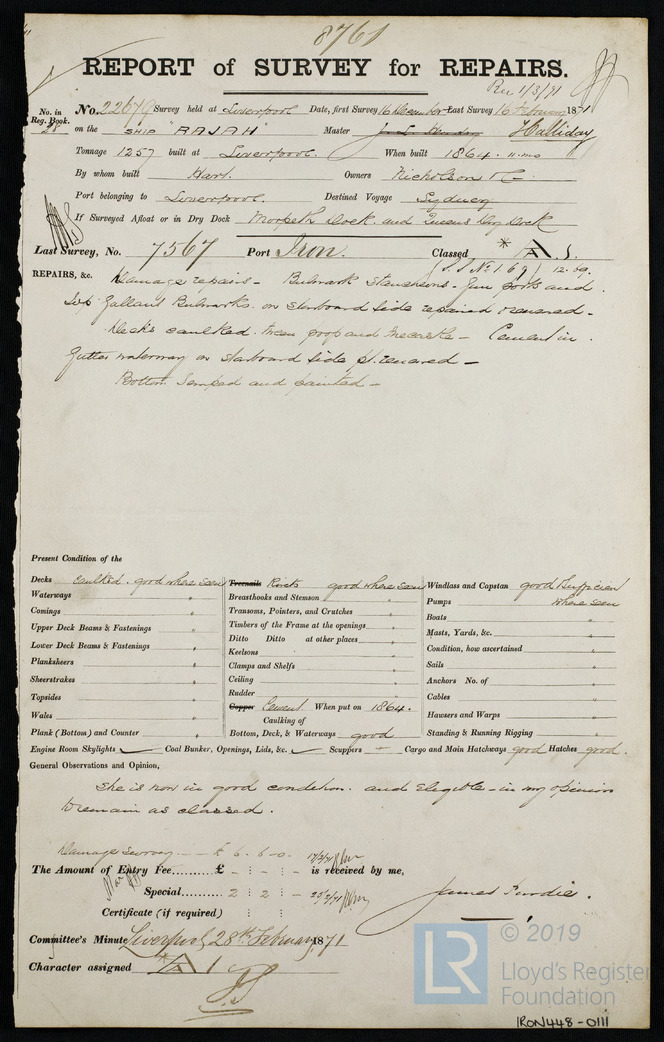 8761
REPORT of SURVEY for REPAIRS.
Rec 1/3/71
No. in Reg. Book. 28 No. 22679 Survey held at Liverpool Date, first Survey 16 December Last Survey 16 February 1871
on the SHIP "RAJAH" Master Halliday
Tonnage 1257 built at Liverpool. When built 1864. 11 mo
By whom built Hart. Owners Nicholson & C
Port belonging to Liverpool. Destined Voyage Sydney
If Surveyed Afloat or in Dry Dock Morpeth Dock. and Queens Dry Dock
Last Survey, No. 7567 Port Iron. Classed * A 1.
(S.S. No. 1 69) 12.69.
REPAIRS, &c. Damage repairs - Bulwark Stanchions - Gun ports and
Top Gallant Bulwarks. on Starboard Side repaired & renewed -
Decks caulked. tween poop and - Cement in
Gutter waterway on starboard side pt. renewed -
Bottom Scraped and painted -
Present Condition of the
Decks caulked. good where seen
Waterways "
Comings "
Upper Deck Beams & Fastenings "
Lower Deck Beams & Fastenings "
Planksheers "
Sheerstrakes "
Topsides "
Wales "
Plank (Bottom) and Counter "
Treenails Rivets good where seen
Breasthooks and Stemson "
Transoms, Pointers, and Crutches "
Timbers of the Frame at the openings "
Ditto Ditto at other places "
Keelsons "
Clamps and Shelfs "
Ceiling "
Rudder "
Copper Cement When put on 1864.
Caulking of
Bottom, Deck, & Waterways good
Windlass and Capstan good & sufficient
Pumps where seen
Boats "
Masts, Yards, &c. "
Condition, how ascertained "
Sails "
Anchors No. of "
Cables "
Hawsers and Warps "
Standing & Running Rigging "
Engine Room Skylights Coal Bunker, Openings, Lids, &c. Scuppers Cargo and Main Hatchways good Hatches good.
General Observations and Opinion,
She is now in good condition. and eligible - in my opinion
to remain as classed.
Damage survey - £ 6 . 6 . 0 .
The Amount of Entry Fee........ £ - : - : - is received by me,
Special......... 2 : 2 : -
Certificate (if required)
James Purdie.
Committee's Minute Liverpool, 28th February 1871
Character assigned * A 1
LR © 2019
Lloyd's Register
Foundation
IRON448-0111